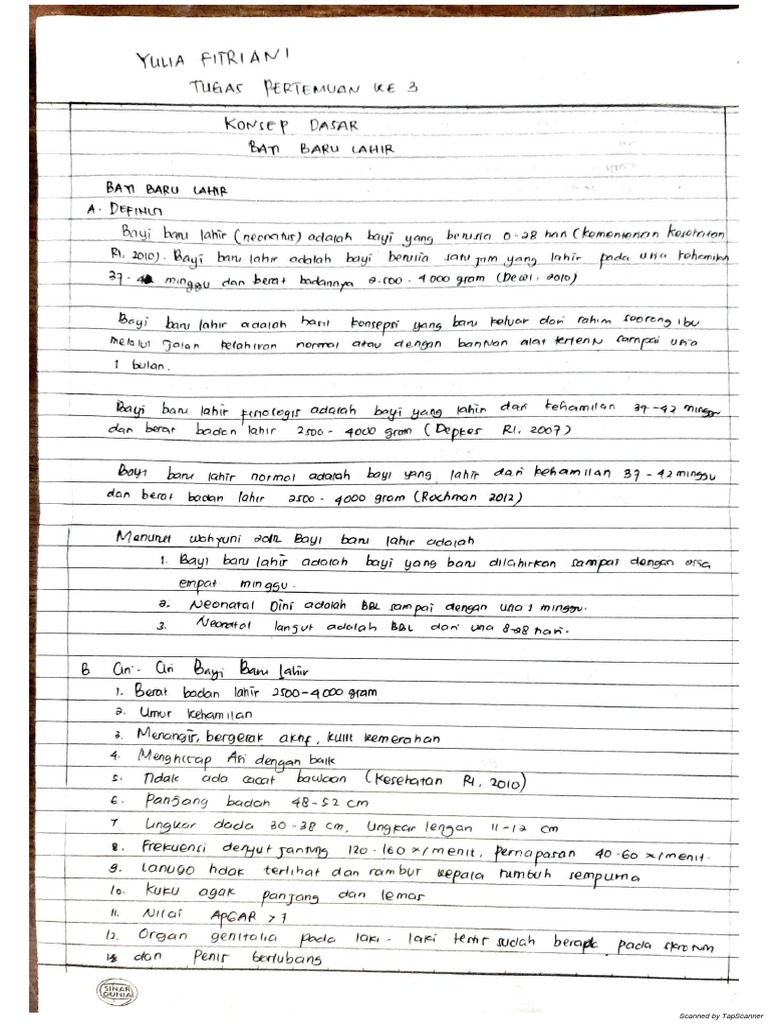 YULIA FITRIANI
TUGAS PERTEMUAN KE 3
KONSEP DASAR
BAYI BARU LAHIR
BAYI BARU LAHIR
A. DEFINISI
Bayi baru lahir (neonatus) adalah bayi yang berusia 0-28 hari (Kementerian Kesehatan
RI, 2010). Bayi baru lahir adalah bayi berusia satu jam yang lahir pada usia kehamilan
37 - 42 minggu dan berat badannya 2.500 - 4000 gram (Dewi, 2010)
Bayi baru lahir adalah hasil konsepsi yang baru keluar dari rahim seorang ibu
melalui jalan kelahiran normal atau dengan bantuan alat tertentu sampai usia
1 bulan.
Bayi baru lahir fisiologis adalah bayi yang lahir dari kehamilan 37-42 minggu
dan berat badan lahir 2500 - 4000 gram (Depkes RI, 2007)
Bayi baru lahir normal adalah bayi yang lahir dari kehamilan 37 - 42 minggu
dan berat badan lahir 2500 - 4000 gram (Rochman 2012)
Menurut Wahyuni 2012 Bayi baru lahir adalah
1. Bayi baru lahir adalah bayi yang baru dilahirkan sampai dengan usia
empat minggu.
2. Neonatal Dini adalah BBL sampai dengan usia 1 minggu.
3. Neonatal lanjut adalah BBL dari usia 8-28 hari.
B Ciri- Ciri Bayi Baru lahir
1. Berat badan lahir 2500-4000 gram
2. Umur kehamilan
3. Menangis, bergerak aktif, kulit kemerahan
4. Menghisap Asi dengan baik
5. Tidak ada cacat bawaan (Kesehatan RI, 2010)
6. Panjang badan 48-52 cm
7 Lingkar dada 30-38 cm, Lingkar lengan 11-12 cm
8. Frekuensi denyut jantung 120-160 x/menit, pernapasan 40-60 x/menit.
9. Lanugo tidak terlihat dan rambut kepala tumbuh sempurna
10. Kuku agak panjang dan lemas
11. Nilai APGAR > 7
12. Organ genitalia pada laki- laki testis sudah berada pada skrotum
dan Penis berlubang
SINAR DUNIA
Scanned by TapScanner